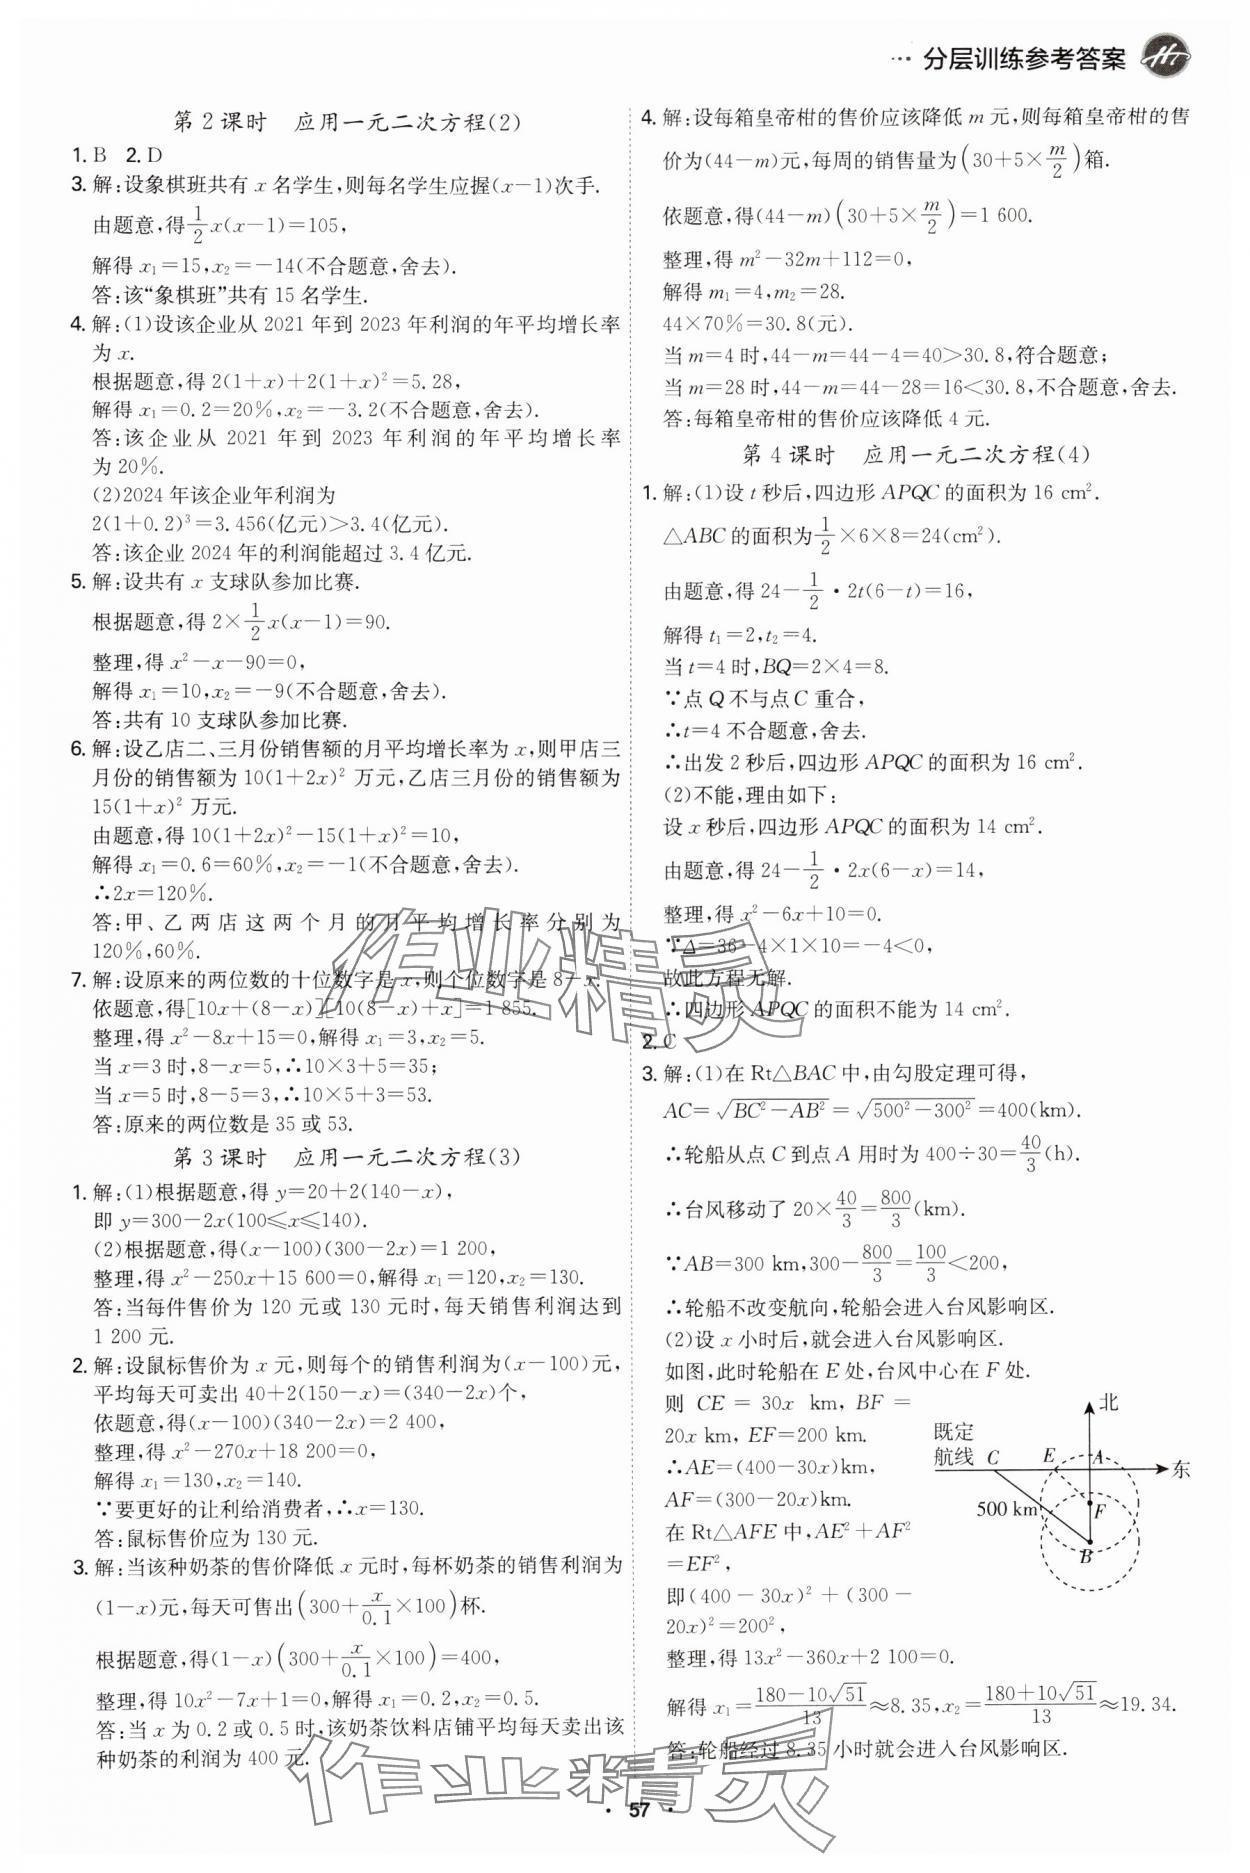 … 分层训练参考答案
第2课时 应用一元二次方程(2)
1. B 2. D
3. 解:设象棋班共有 x 名学生,则每名学生应握(x-1)次手.
由题意,得$\frac{1}{2}$x(x-1)=105,
解得 x₁=15,x₂=-14(不合题意,舍去).
答:该“象棋班”共有 15 名学生.
4. 解:(1)设该企业从 2021 年到 2023 年利润的年平均增长率
为 x.
根据题意,得 2(1+x)+2(1+x)²=5.28,
解得 x₁=0.2=20%,x₂=-3.2(不合题意,舍去).
答:该企业从 2021 年到 2023 年利润的年平均增长率
为 20%.
(2)2024 年该企业年利润为
2(1+0.2)³=3.456(亿元)>3.4(亿元).
答:该企业 2024 年的利润能超过 3.4 亿元.
5. 解:设共有 x 支球队参加比赛.
根据题意,得 2×$\frac{1}{2}$x(x-1)=90.
整理,得 x²-x-90=0,
解得 x₁=10,x₂=-9(不合题意,舍去).
答:共有 10 支球队参加比赛.
6. 解:设乙店二、三月份销售额的月平均增长率为 x,则甲店三
月份的销售额为 10(1+2x)² 万元,乙店三月份的销售额为
15(1+x)² 万元.
由题意,得 10(1+2x)²-15(1+x)²=10,
解得 x₁=0.6=60%,x₂=-1(不合题意,舍去).
∴2x=120%.
答:甲、乙两店这两个月的月平均增长率分别为
120%,60%.
7. 解:设原来的两位数的十位数字是 x,则个位数字是 8-x.
依题意,得[10x+(8-x)][10(8-x)+x]=1 855.
整理,得 x²-8x+15=0,解得 x₁=3,x₂=5.
当 x=3 时,8-x=5,∴10×3+5=35;
当 x=5 时,8-5=3,∴10×5+3=53.
答:原来的两位数是 35 或 53.
第3课时 应用一元二次方程(3)
1. 解:(1)根据题意,得 y=20+2(140-x),
即 y=300-2x(100≤x≤140).
(2)根据题意,得(x-100)(300-2x)=1 200,
整理,得 x²-250x+15 600=0,解得 x₁=120,x₂=130.
答:当每件售价为 120 元或 130 元时,每天销售利润达到
1 200 元.
2. 解:设鼠标售价为 x 元,则每个的销售利润为(x-100)元,
平均每天可卖出 40+2(150-x)=(340-2x)个,
依题意,得(x-100)(340-2x)=2 400,
整理,得 x²-270x+18 200=0,
解得 x₁=130,x₂=140.
∵要更好的让利给消费者,∴x=130.
答:鼠标售价应为 130 元.
3. 解:当该种奶茶的售价降低 x 元时,每杯奶茶的销售利润为
(1-x)元,每天可售出$\left(300+\frac{x}{0.1}×100\right)$杯.
根据题意,得(1-x)$\left(300+\frac{x}{0.1}×100\right)$=400,
整理,得 10x²-7x+1=0,解得 x₁=0.2,x₂=0.5.
答:当 x 为 0.2 或 0.5 时,该奶茶饮料店铺平均每天卖出该
种奶茶的利润为 400 元.
4. 解:设每箱皇帝柑的售价应该降低 m 元,则每箱皇帝柑的售
价为(44-m)元,每周的销售量为$\left(30+5×\frac{m}{2}\right)$箱.
依题意,得(44-m)$\left(30+5×\frac{m}{2}\right)$=1 600.
整理,得 m²-32m+112=0,
解得 m₁=4,m₂=28.
44×70%=30.8(元).
当 m=4 时,44-m=44-4=40>30.8,符合题意;
当 m=28 时,44-m=44-28=16<30.8,不合题意,舍去.
答:每箱皇帝柑的售价应该降低 4 元.
第4课时 应用一元二次方程(4)
1. 解:(1)设 t 秒后,四边形 APQC 的面积为 16 cm².
△ABC 的面积为$\frac{1}{2}$×6×8=24(cm²).
由题意,得 24-$\frac{1}{2}$·2t(6-t)=16,
解得 t₁=2,t₂=4.
当 t=4 时,BQ=2×4=8.
∵点 Q 不与点 C 重合,
∴t=4 不合题意,舍去.
∴出发 2 秒后,四边形 APQC 的面积为 16 cm².
(2)不能,理由如下:
设 x 秒后,四边形 APQC 的面积为 14 cm².
由题意,得 24-$\frac{1}{2}$·2x(6-x)=14,
整理,得 x²-6x+10=0.
∵Δ=36-4×1×10=-4<0,
故此方程无解.
∴四边形 APQC 的面积不能为 14 cm².
2. C
3. 解:(1)在 Rt△BAC 中,由勾股定理可得,
AC=$\sqrt{BC²-AB²}$=$\sqrt{500²-300²}$=400(km).
∴轮船从点 C 到点 A 用时为 400÷30=$\frac{40}{3}$(h).
∴台风移动了 20×$\frac{40}{3}$=$\frac{800}{3}$(km).
∵AB=300 km,300-$\frac{800}{3}$=$\frac{100}{3}$<200,
∴轮船不改变航向,轮船会进入台风影响区.
(2)设 x 小时后,就会进入台风影响区.
如图,此时轮船在 E 处,台风中心在 F 处.
则 CE = 30x km, BF =
20x km, EF=200 km.
∴AE=(400-30x)km,
AF=(300-20x)km.
在 Rt△AFE 中,AE²+AF²
=EF²,
即(400-30x)²+(300-
20x)²=200²,
整理,得 13x²-360x+2 100=0.
解得 x₁=$\frac{180-10\sqrt{51}}{13}$≈8.35,x₂=$\frac{180+10\sqrt{51}}{13}$≈19.34.
答:轮船经过 8.35 小时就会进入台风影响区.
北
既定
航线
C
E
A
东
500 km
F
B
作业精灵
作业精灵
· 57 ·